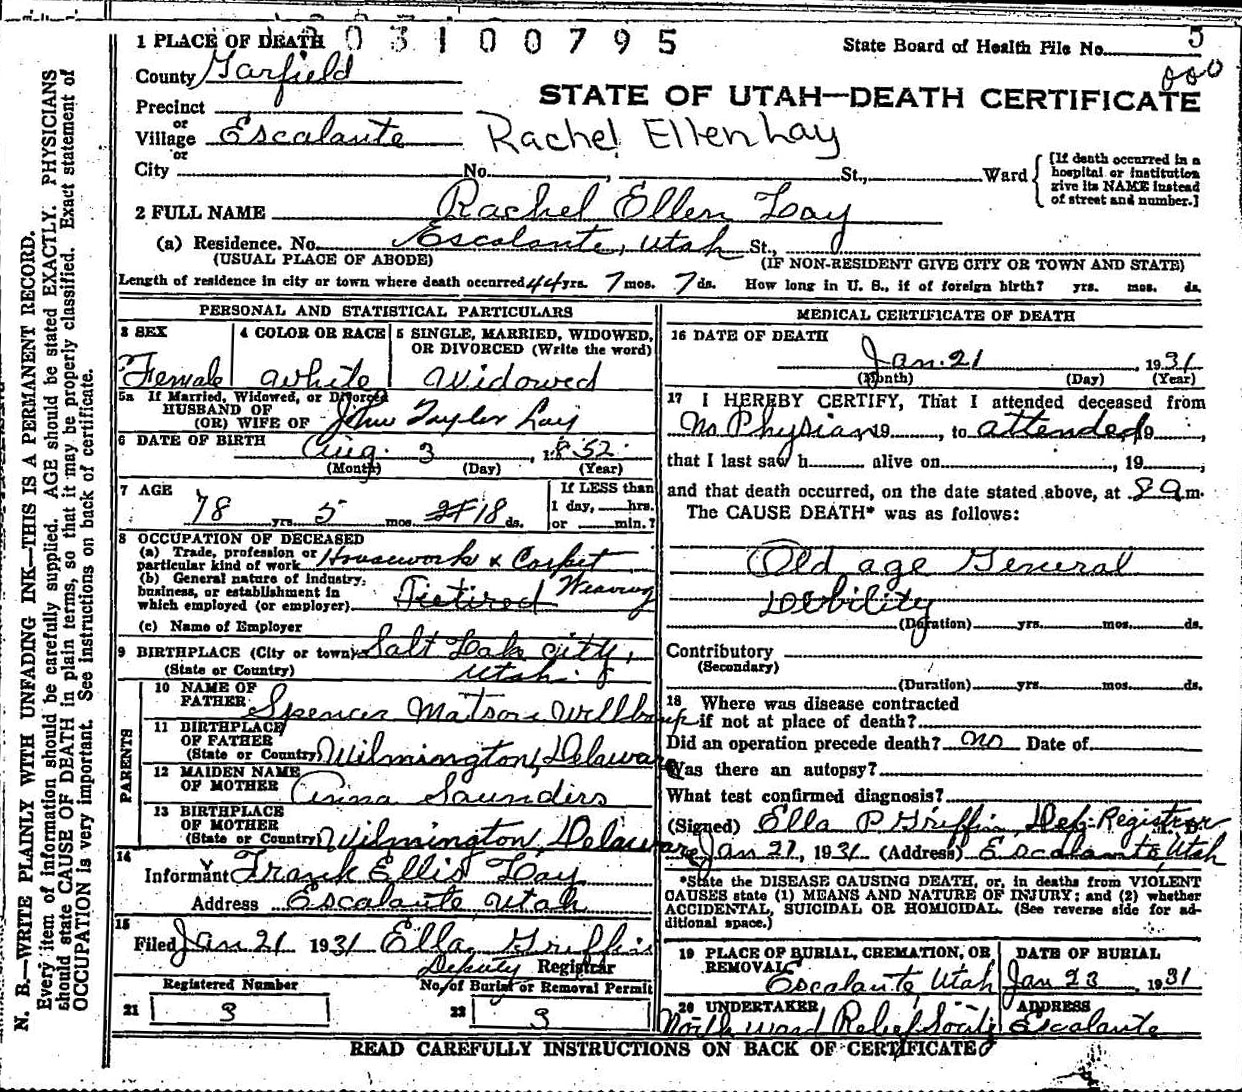 1 PLACE OF DEATH 03100795 State Board of Health File No. 5
County Garfield 000
STATE OF UTAH—DEATH CERTIFICATE
Precinct
or
Village Escalante Rachel Ellen Lay
or
City No. , St., Ward
[If death occurred in a
hospital or institution
give its NAME instead
of street and number.]
2 FULL NAME Rachel Ellen Lay
(a) Residence. No. Escalante, Utah St.,
(USUAL PLACE OF ABODE) (IF NON-RESIDENT GIVE CITY OR TOWN AND STATE)
Length of residence in city or town where death occurred 44 yrs. 7 mos. 7 ds. How long in U. S., if of foreign birth? yrs. mos. ds.
PERSONAL AND STATISTICAL PARTICULARS
3 SEX 4 COLOR OR RACE 5 SINGLE, MARRIED, WIDOWED,
OR DIVORCED (Write the word)
Female white Widowed
5a If Married, Widowed, or Divorced
HUSBAND OF
(OR) WIFE OF John Taylor Lay
6 DATE OF BIRTH Aug. 3, 1852
(Month) (Day) (Year)
7 AGE If LESS than
78 yrs. 5 mos. 18 ds. 1 day, hrs.
or min.?
8 OCCUPATION OF DECEASED
(a) Trade, profession or
particular kind of work Housework & Carpet
Weaving
(b) General nature of industry,
business, or establishment in
which employed (or employer) Retired
(c) Name of Employer
9 BIRTHPLACE (City or town) Salt Lake City,
(State or Country) Utah.
PARENTS
10 NAME OF
FATHER Spencer Matson Willbanup
11 BIRTHPLACE
OF FATHER
(State or Country) Wilmington, Delaware
12 MAIDEN NAME
OF MOTHER Anna Saunders
13 BIRTHPLACE
OF MOTHER
(State or Country) Wilmington, Delaware
14
Informant Frank Ellis Lay
Address Escalante Utah
15
Filed Jan 21 1931 Ella Griffin
Deputy Registrar
Registered Number No. of Burial or Removal Permit
21 3 22 3
MEDICAL CERTIFICATE OF DEATH
16 DATE OF DEATH
Jan. 21, 1931
(Month) (Day) (Year)
17 I HEREBY CERTIFY, That I attended deceased from
No Physian 19 , to attended 19 ,
that I last saw h alive on , 19 ;
and that death occurred, on the date stated above, at 8 a m.
The CAUSE DEATH* was as follows:
Old age General
Debility
(Duration) yrs. mos. ds.
Contributory
(Secondary)
(Duration) yrs. mos. ds.
18 Where was disease contracted
if not at place of death?
Did an operation precede death? no Date of
Was there an autopsy?
What test confirmed diagnosis?
(Signed) Ella P Griffin, Dep. Registrar
Jan 21, 1931 (Address) Escalante Utah
*State the DISEASE CAUSING DEATH, or, in deaths from VIOLENT
CAUSES state (1) MEANS AND NATURE OF INJURY; and (2) whether
ACCIDENTAL, SUICIDAL OR HOMICIDAL. (See reverse side for ad-
ditional space.)
19 PLACE OF BURIAL, CREMATION, OR DATE OF BURIAL
REMOVAL
Escalante, Utah Jan 23 1931
20 UNDERTAKER ADDRESS
North Ward Relief Society Escalante
READ CAREFULLY INSTRUCTIONS ON BACK OF CERTIFICATE
N. B.—WRITE PLAINLY WITH UNFADING INK—THIS IS A PERMANENT RECORD.
Every item of information should be carefully supplied. AGE should be stated EXACTLY. PHYSICIANS
should state CAUSE OF DEATH in plain terms, so that it may be properly classified. Exact statement of
OCCUPATION is very important. See instructions on back of certificate.